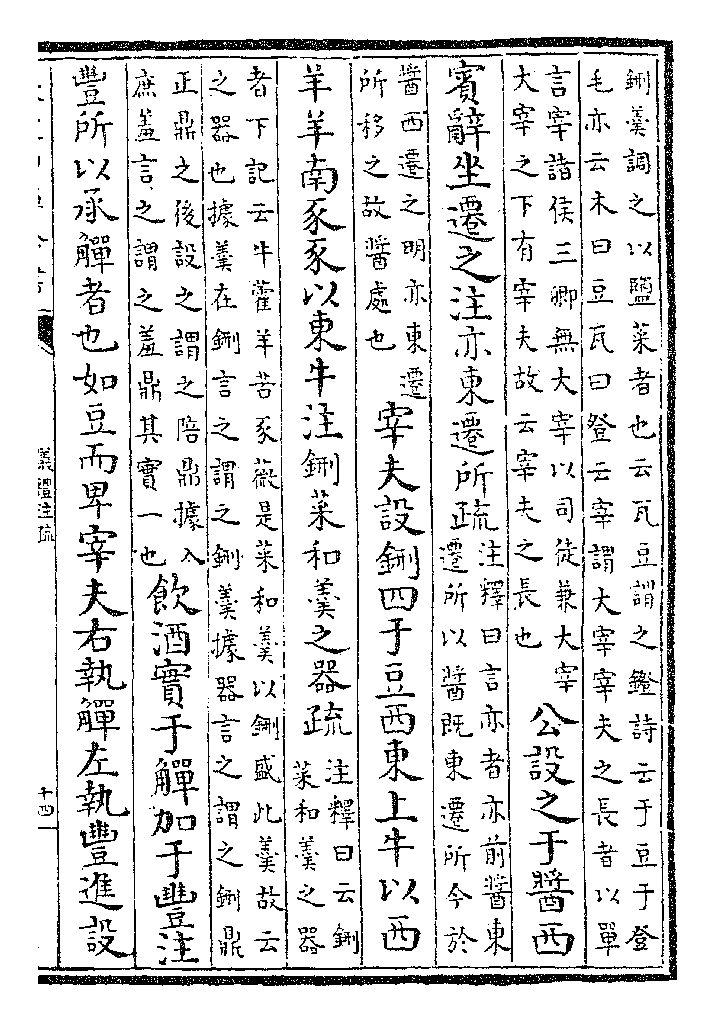 鉶羹調之以鹽菜者也云瓦豆謂之鐙詩云于豆于登
毛亦云木曰豆瓦曰登云宰謂大宰宰夫之長者以單
言宰諸侯三卿無大宰以司徒兼大宰
大宰之下有宰夫故云宰夫之長也
公設之于醬西
賓辭坐遷之注亦東遷所疏
注釋曰言亦者亦前醬東
遷所以醬既東遷所今於
醬西遷之明亦東遷
所移之故醬處也
宰夫設鉶四于豆西東上牛以西
羊羊南豕豕以東牛注鉶菜和羹之器疏
注釋曰云鉶
菜和羹之器
者下記云牛藿羊苦豕薇是菜和羹以鉶盛此羹故云
之器也據羹在鉶言之謂之鉶羹據器言之謂之鉶鼎
正鼎之後設之謂之陪鼎據入
庶羞言之謂之羞鼎其實一也
飲酒實于觶加于豐注
豐所以承觶者也如豆而卑宰夫右執觶左執豐進設
儀禮注疏
十四